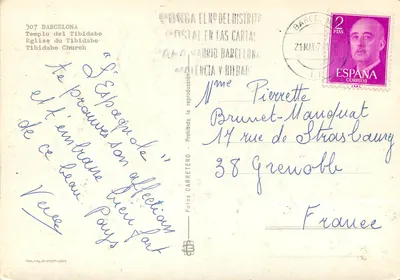 307 BARCELONA
Templo del Tibidabo
Eglise du Tibidabo
Tibidabo Church
"L'Espagne"
te prouver son affection
et t'embrasse bien fort
de ce beau Pays
Fotos CARRETERO - Prohibida la reproducción
EL Nº DEL DISTRITO
POSTAL EN LAS CARTAS
MADRID BARCELONA
VALENCIA Y BILBAO
BARCELONA
2
PTAS
ESPAÑA
CORREOS
Mme Pierrette
Brunet-Manquat
17 rue de Strasbourg
38 Grenoble
France